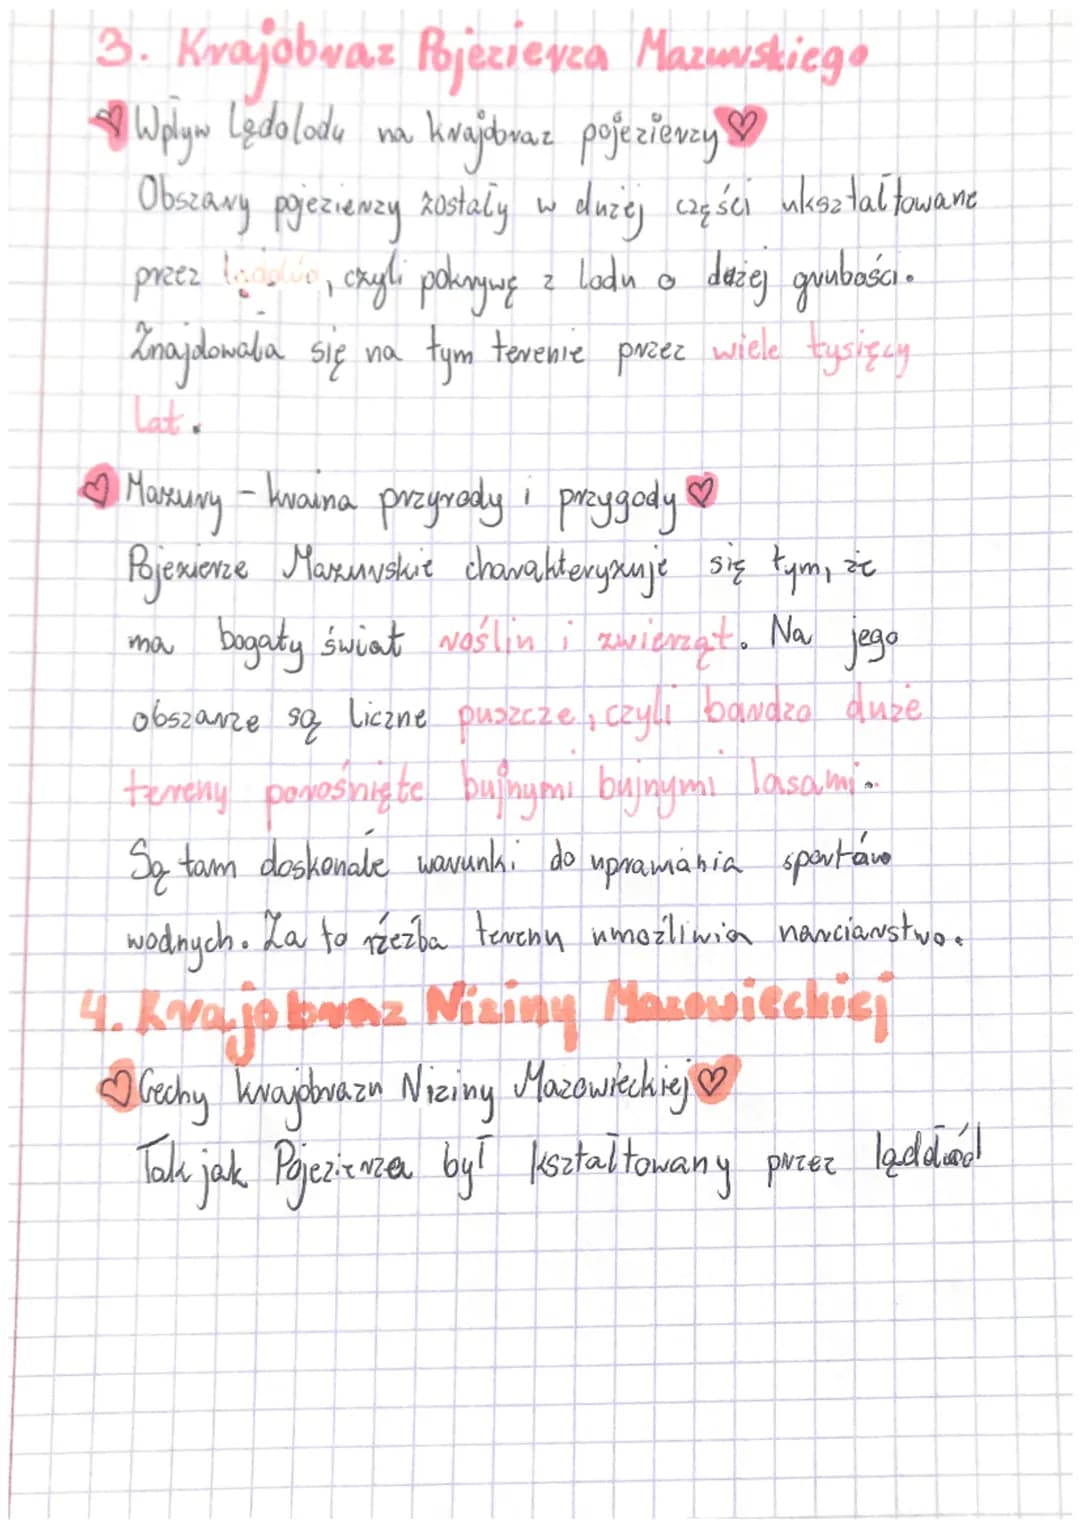 3. Krajobraz Pojezierza Mazurskiego
Wpływ Lądolodu na krajobraz pojezierzy
Obszary pojezierzy zostały w dużej części ukształtowane
przez lądolód, czyli pokrywę z lodu o dużej grubości.
Znajdowała się na tym terenie przez wiele tysięcy
lat.
Mazury - kraina przyrody i przygody
Pojezierze Mazurskie charakteryzuje się tym, że
ma bogaty świat roślin i zwierząt. Na jego
obszarze są liczne puszcze, czyli bardzo duże
tereny porośnięte bujnymi bujnymi lasami.
Są tam doskonałe warunki do uprawiania sportów
wodnych. Za to rzeźba terenu umożliwia narciarstwo.
4. Krajobraz Niziny Mazowieckiej
Cechy krajobrazu Niziny Mazowieckiej
Tak jak Pojezierza był kształtowany przez lądolód